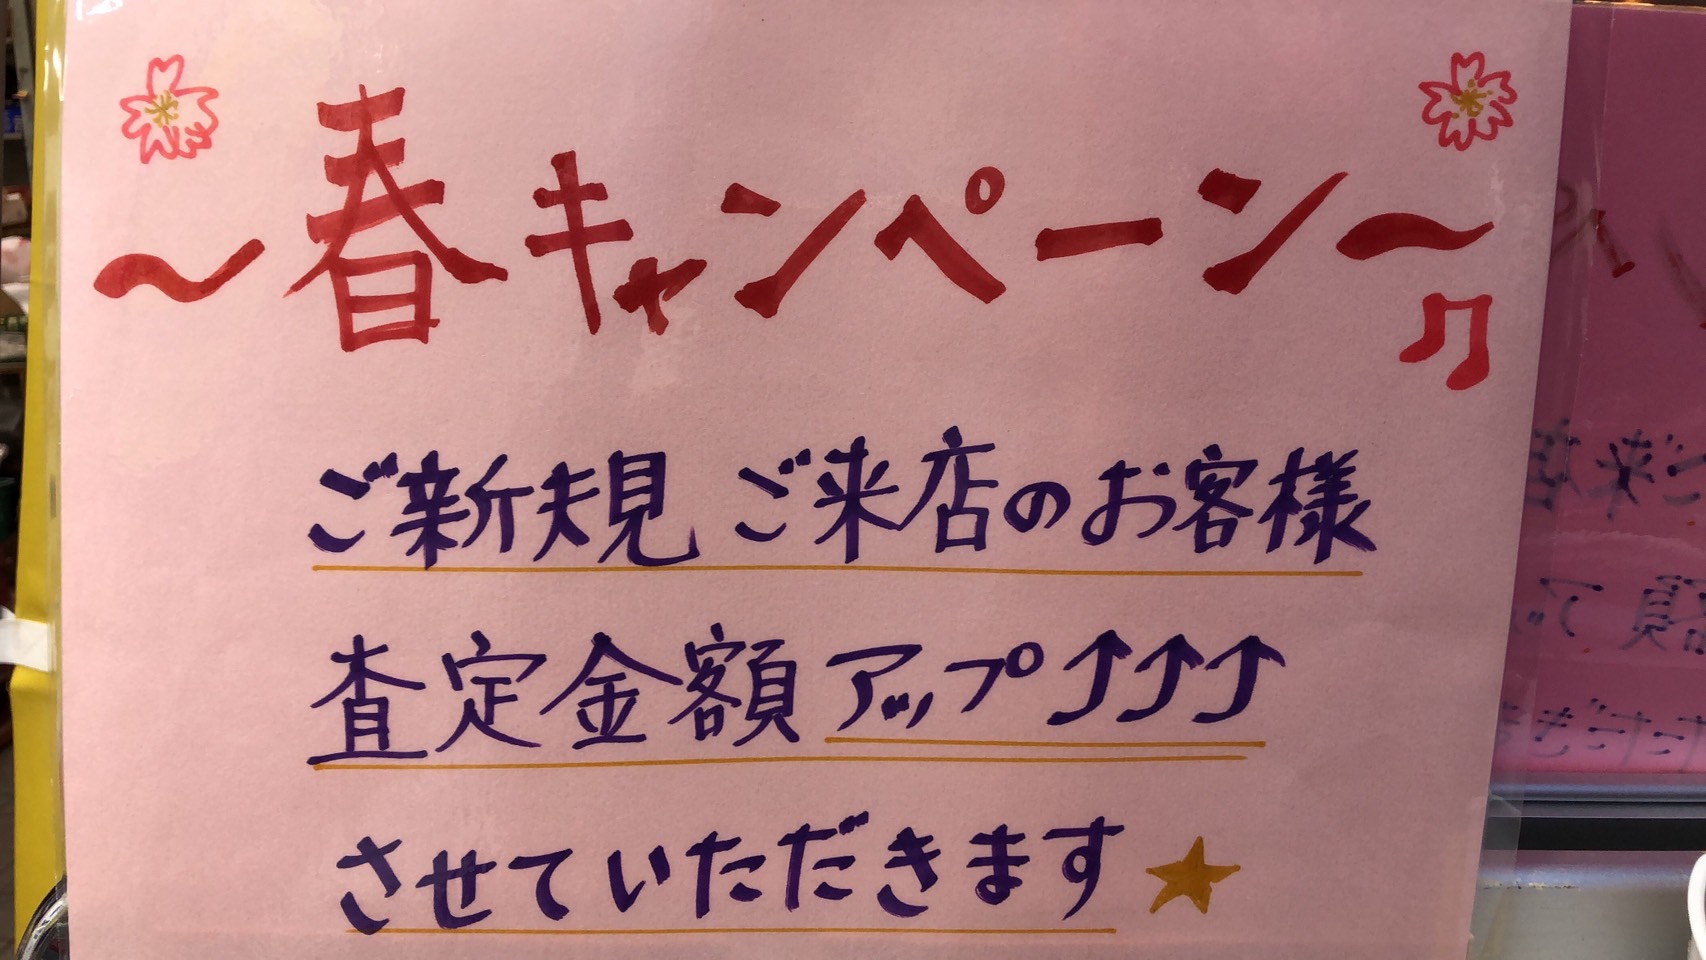 ～春キャンペーン～♫
ご新規 ご来店のお客様
査定金額アップ⤴⤴⤴
させていただきます★